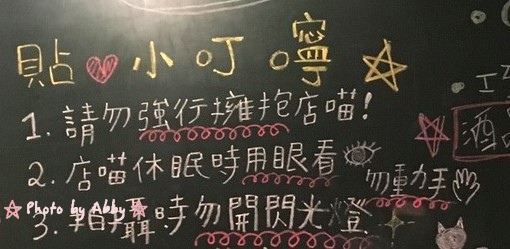 貼♥小叮嚀☆
1. 請勿強行擁抱店喵!
2. 店喵休眠時用眼看
勿動手
3. 時勿開閃光燈
☆ Photo by Abby ☆
酒